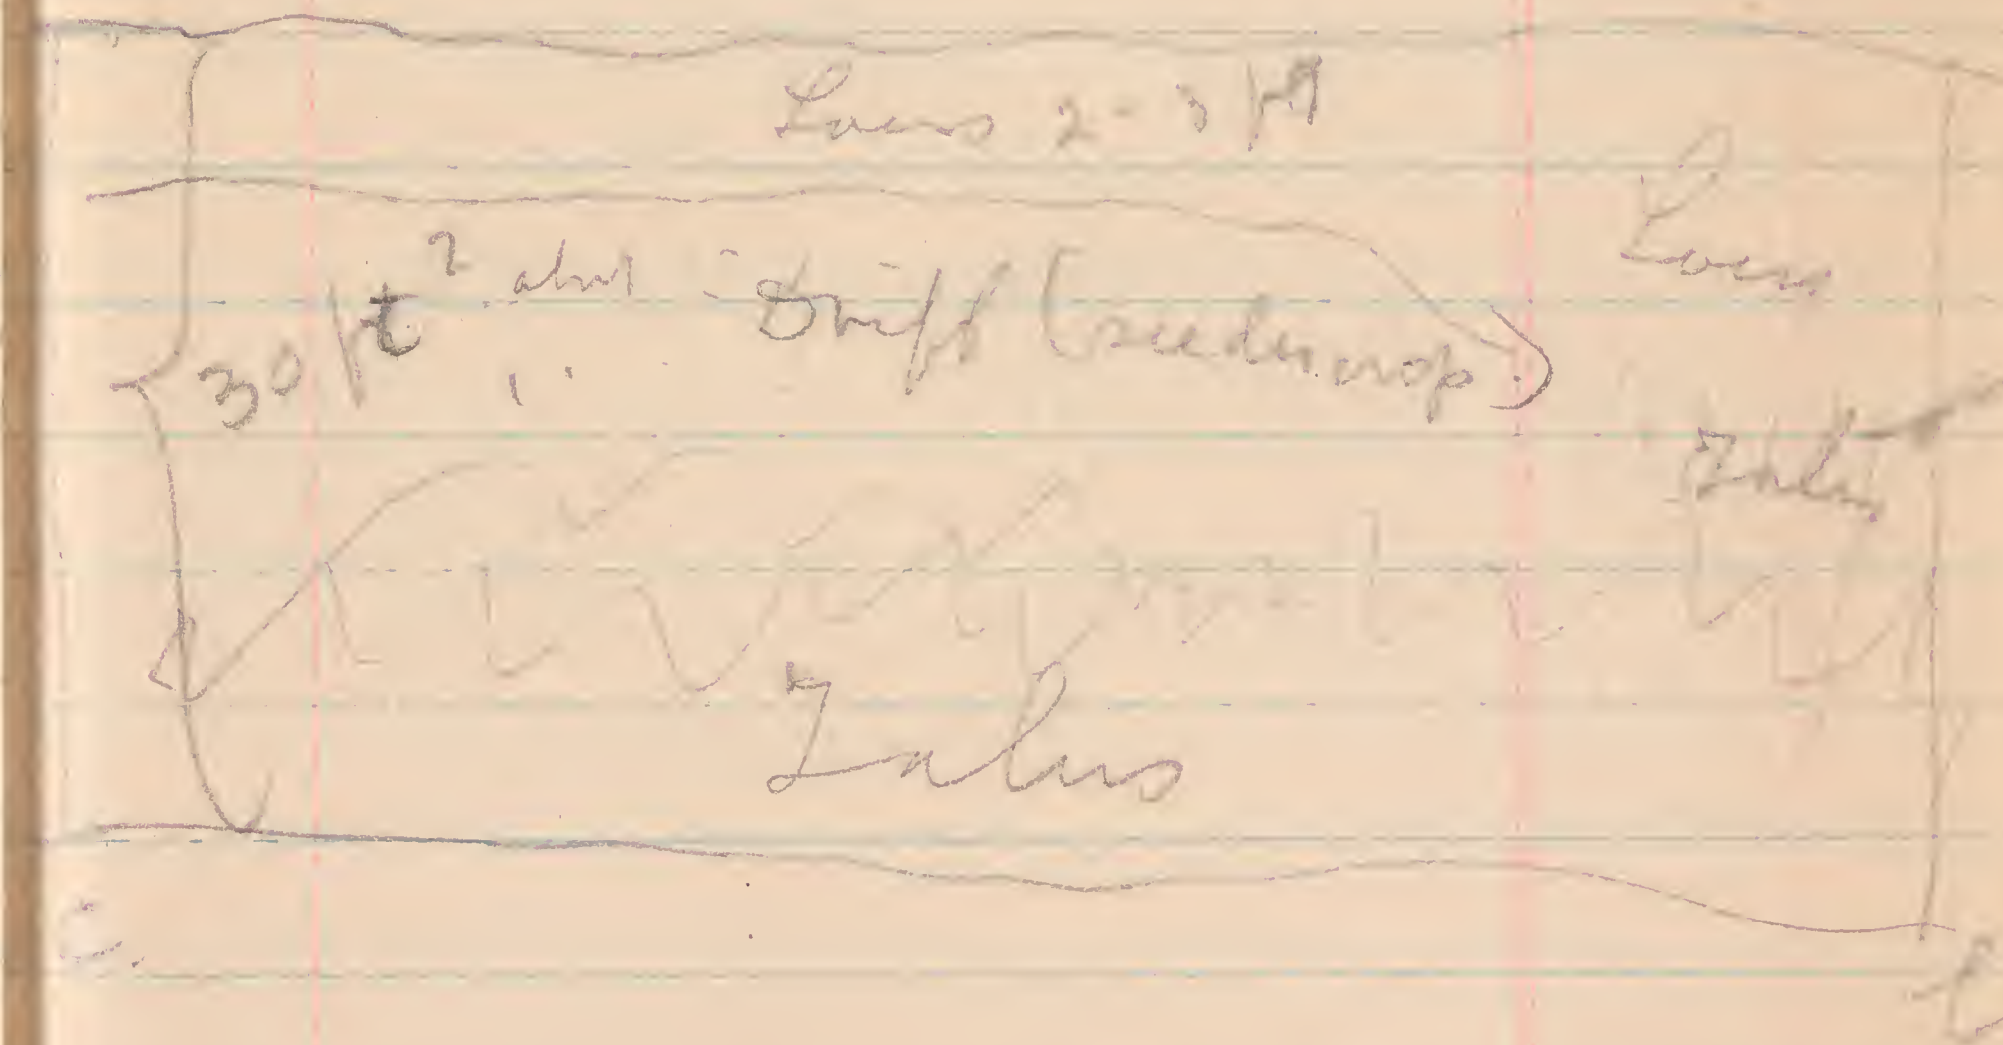 Loess 2-3 ft
Loess
30 ft? about Drift (
Talus
Talus